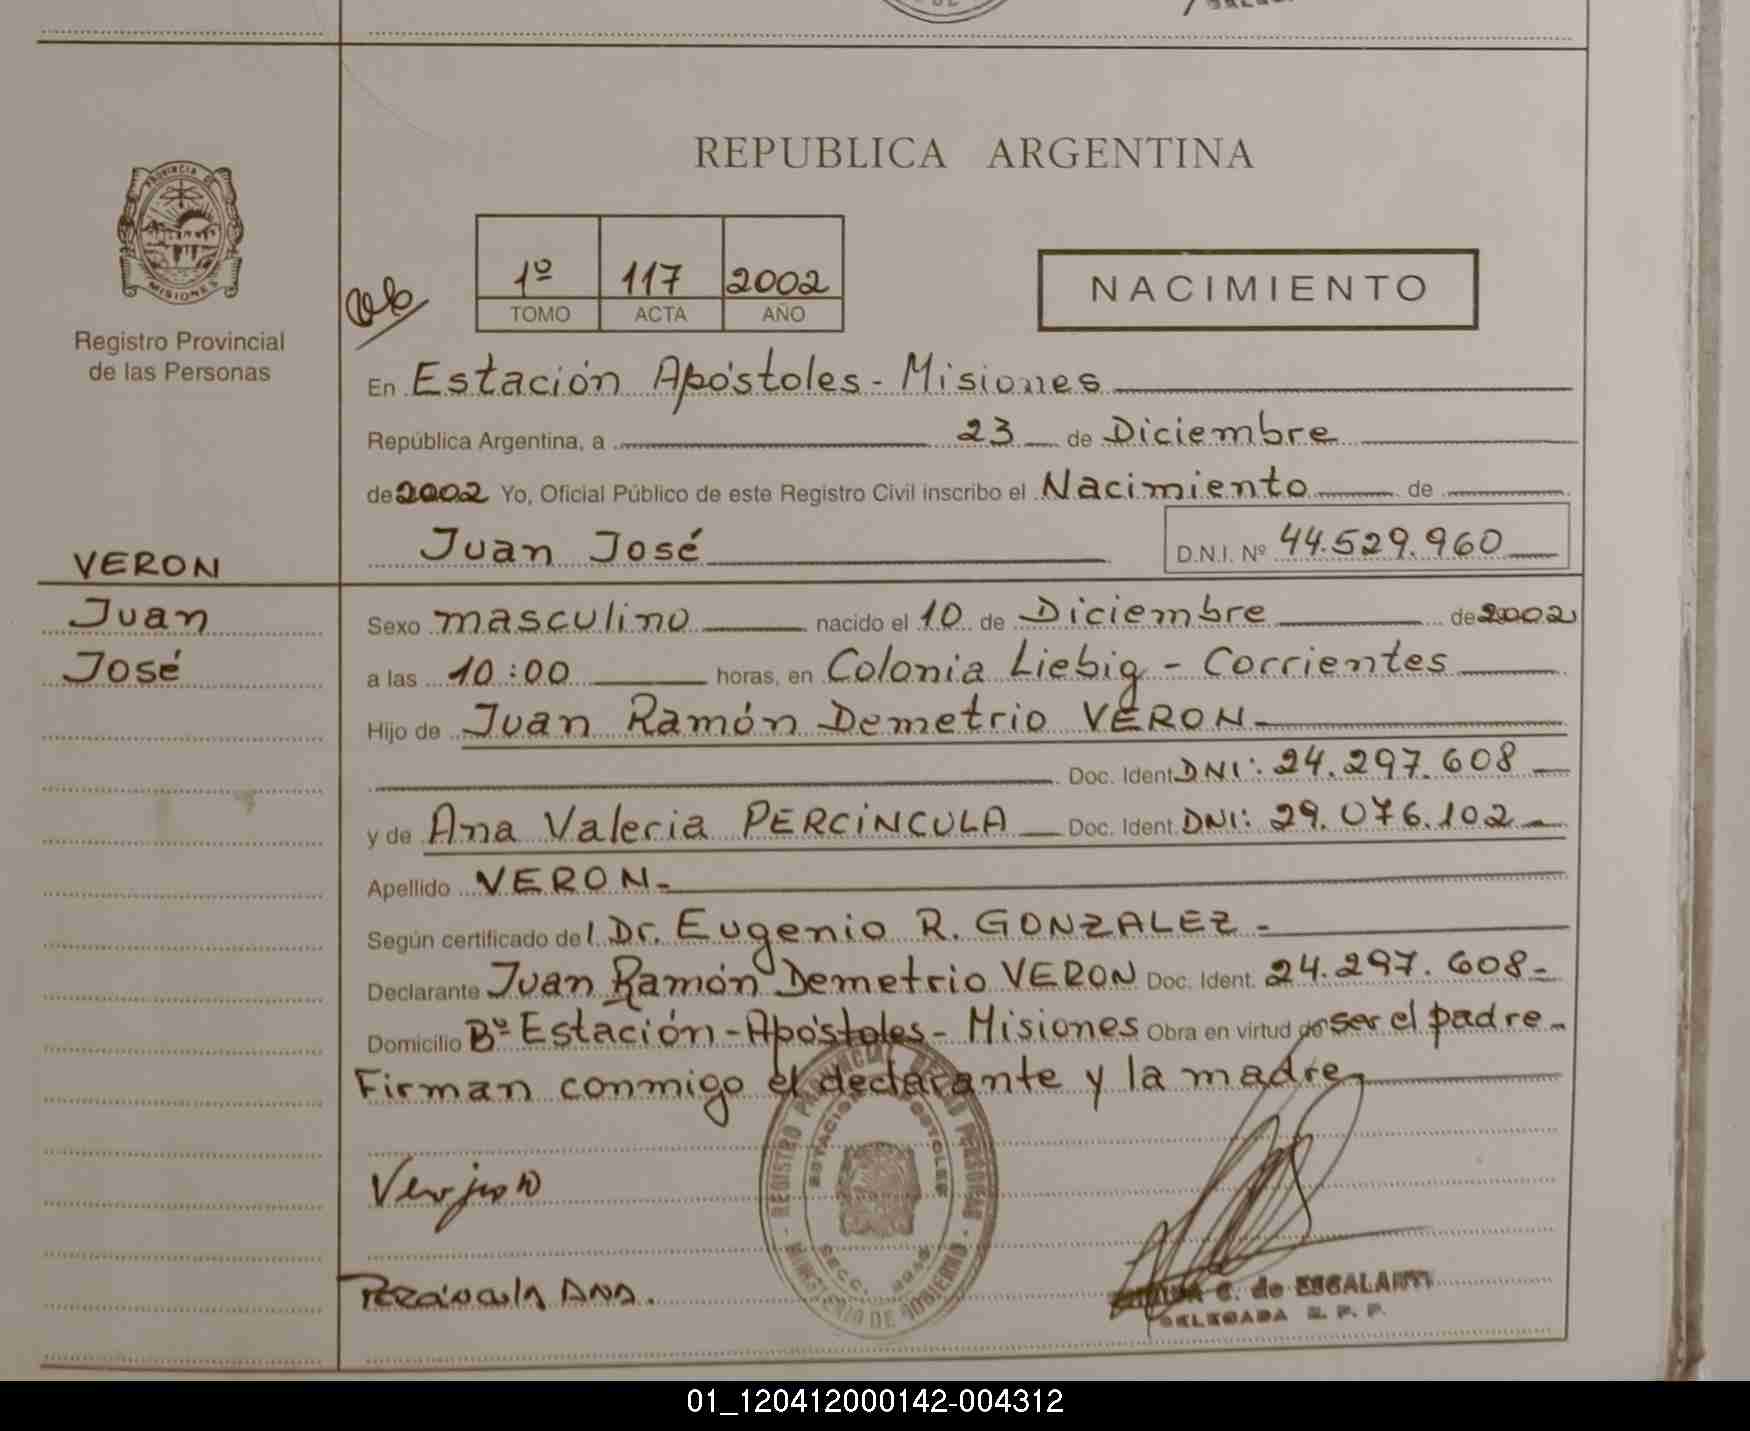 REPUBLICA ARGENTINA
PROVINCIA DE
MISIONES
Registro Provincial
de las Personas
1º 117 2002
TOMO ACTA AÑO
NACIMIENTO
En Estación Apóstoles - Misiones
República Argentina, a 23 de Diciembre
de 2002 Yo, Oficial Público de este Registro Civil inscribo el Nacimiento de
Juan José D.N.I. Nº 44.529.960
VERON
Juan
José
Sexo masculino nacido el 10 de Diciembre de 2002
a las 10:00 horas, en Colonia Liebig - Corrientes
Hijo de Juan Ramón Demetrio VERON
Doc. Ident. DNI: 24.297.608
y de Ana Valeria PERCÍNCULA Doc. Ident. DNI: 29.076.102
Apellido VERON.
Según certificado del Dr. Eugenio R. GONZALEZ.-
Declarante Juan Ramón Demetrio VERON Doc. Ident. 24.297.608-
Domicilio Bº Estación - Apóstoles - Misiones Obra en virtud de ser el padre.
Firman conmigo el declarante y la madre,
REGISTRO PROVINCIAL DE LAS PERSONAS
ESTACION APOSTOLES
SECC.
MINISTERIO DE GOBIERNO
C. de ESCALANTE
DELEGADA R. P. P.
01_120412000142-004312